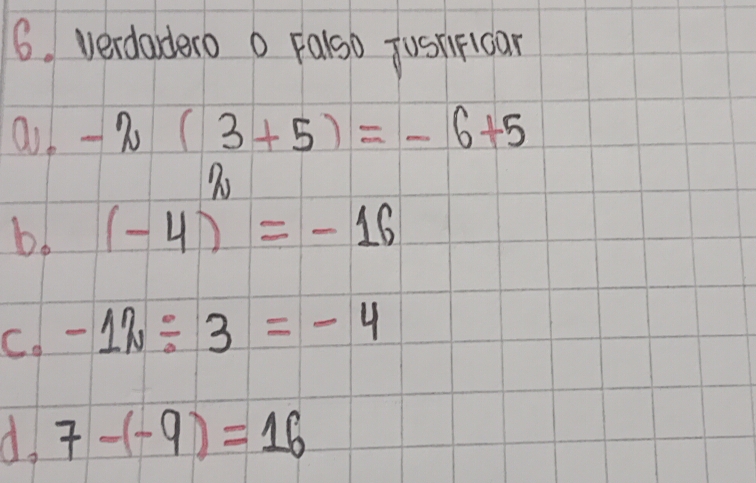 6. Verdadero o Falso Justificar
a. -2 (3+5) = -6+5
b. (-4)² = -16
c. -12 ÷ 3 = -4
d. 7 -(-9) = 16